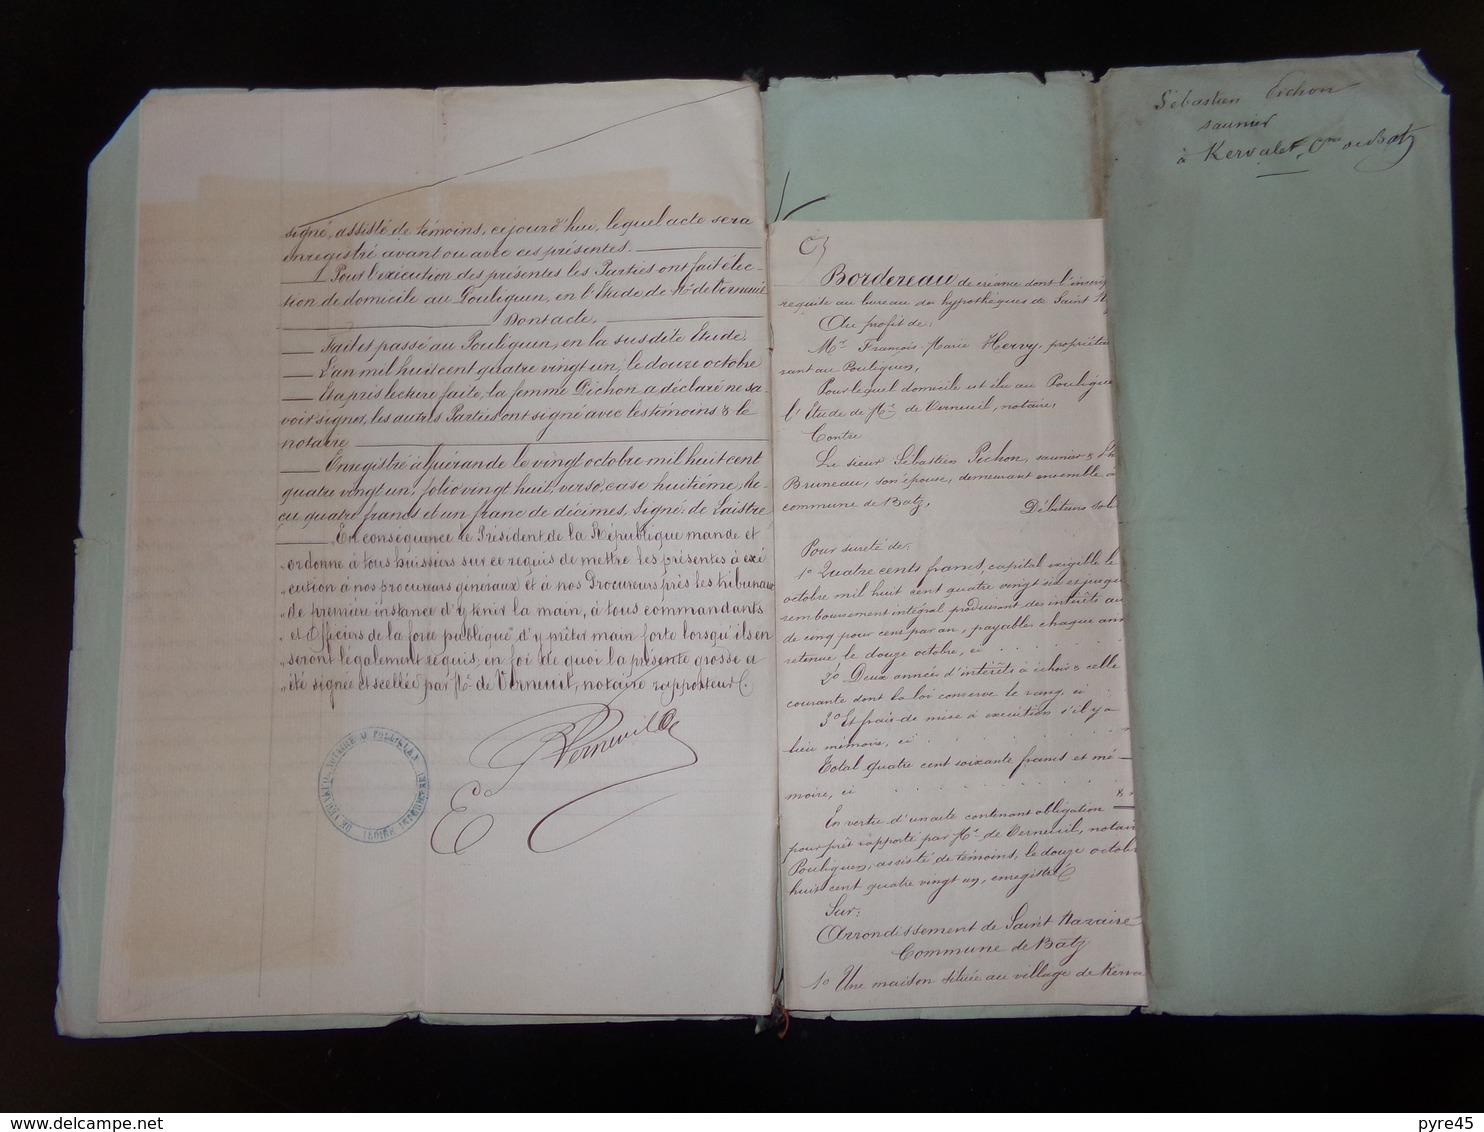 signé, assisté de témoins, cejourd'hui, lequel acte sera
enregistré avant ou avec ces présentes.
Pour l'exécution des présentes les Parties ont fait élec-
tion de domicile au Pouliguen, en l'Etude de Me de Verneuil
Dont acte,
Fait et passé au Pouliguen, en la susdite Etude.
L'an mil huit cent quatre vingt un, le douze octobre
Et après lecture faite, la femme Pichon a déclaré ne sa-
voir signer, les autres Parties ont signé avec les témoins & le
notaire
Enregistré à Guérande le vingt octobre mil huit cent
quatre vingt un, folio vingt huit, verso, case huitième, Re-
çu quatre francs et un franc de décimes, Signé: de Laistre
En conséquence le Président de la République mande et
ordonne à tous huissiers sur ce requis de mettre les présentes à exé
cution à nos procureurs généraux et à nos Procureurs près les tribunaux
de première instance d'y tenir la main, à tous commandants
et Officiers de la force publique d'y prêter main forte lorsqu'ils en
seront légalement requis, en foi de quoi la présente grosse a
été signée et scellée par Me de Verneuil, notaire rapporteur
Verneuil
Bordereau de créance dont l'inscrip
requise au bureau des hypothèques de Saint N
Au profit de:
Mr François Marie Hervy, propriétai
rant au Pouliguen,
Pour lequel domicile est élu au Poulique
l'Etude de Me de Verneuil, notaire,
Contre
Le sieur Sébastien Pichon, saunier &
Bruneau, son épouse, demeurant ensemble à
commune de Batz,
Débiteurs soli
Pour sureté de:
1o Quatre cents francs, capital exigible le
octobre mil huit cent quatre vingt six et jusqu
remboursement intégral produisant des intérêts au
de cinq pour cent par an, payables chaque ann
retenue le douze octobre, ci
2o Deux années d'intérêts à échoir & celle
courante dont la loi conserve le rang, ci
3o Et frais de mise à exécution s'il y a
lieu mémoire, ci
Total quatre cent soixante francs et mé-
moire, ci
En vertu d'un acte contenant obligation
pour prêt rapporté par Me de Verneuil, notair
Pouliguen, assisté de témoins, le douze octobr
huit cent quatre vingt un, enregistré
Sur:
Arrondissement de Saint Nazaire
Commune de Batz
1o Une maison située au village de Kerva
Sébastien Pichon
saunier
à Kervalet, Cne de Batz
delcampe.net
pyre45